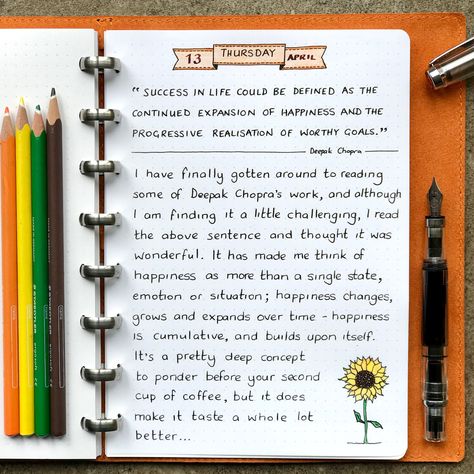 13 THURSDAY APRIL
"SUCCESS IN LIFE COULD BE DEFINED AS THE
CONTINUED EXPANSION OF HAPPINESS AND THE
PROGRESSIVE REALISATION OF WORTHY GOALS."
Deepak Chopra
I have finally gotten around to reading
some of Deepak Chopra's work, and although
I am finding it a little challenging, I read
the above sentence and thought it was
wonderful. It has made me think of
happiness as more than a single state,
emotion or situation; happiness changes,
grows and expands over time - happiness
is cumulative, and builds upon itself.
It's a pretty deep concept
to ponder before your second
cup of coffee, but it does
make it taste a whole lot
better...
STAEDTLER